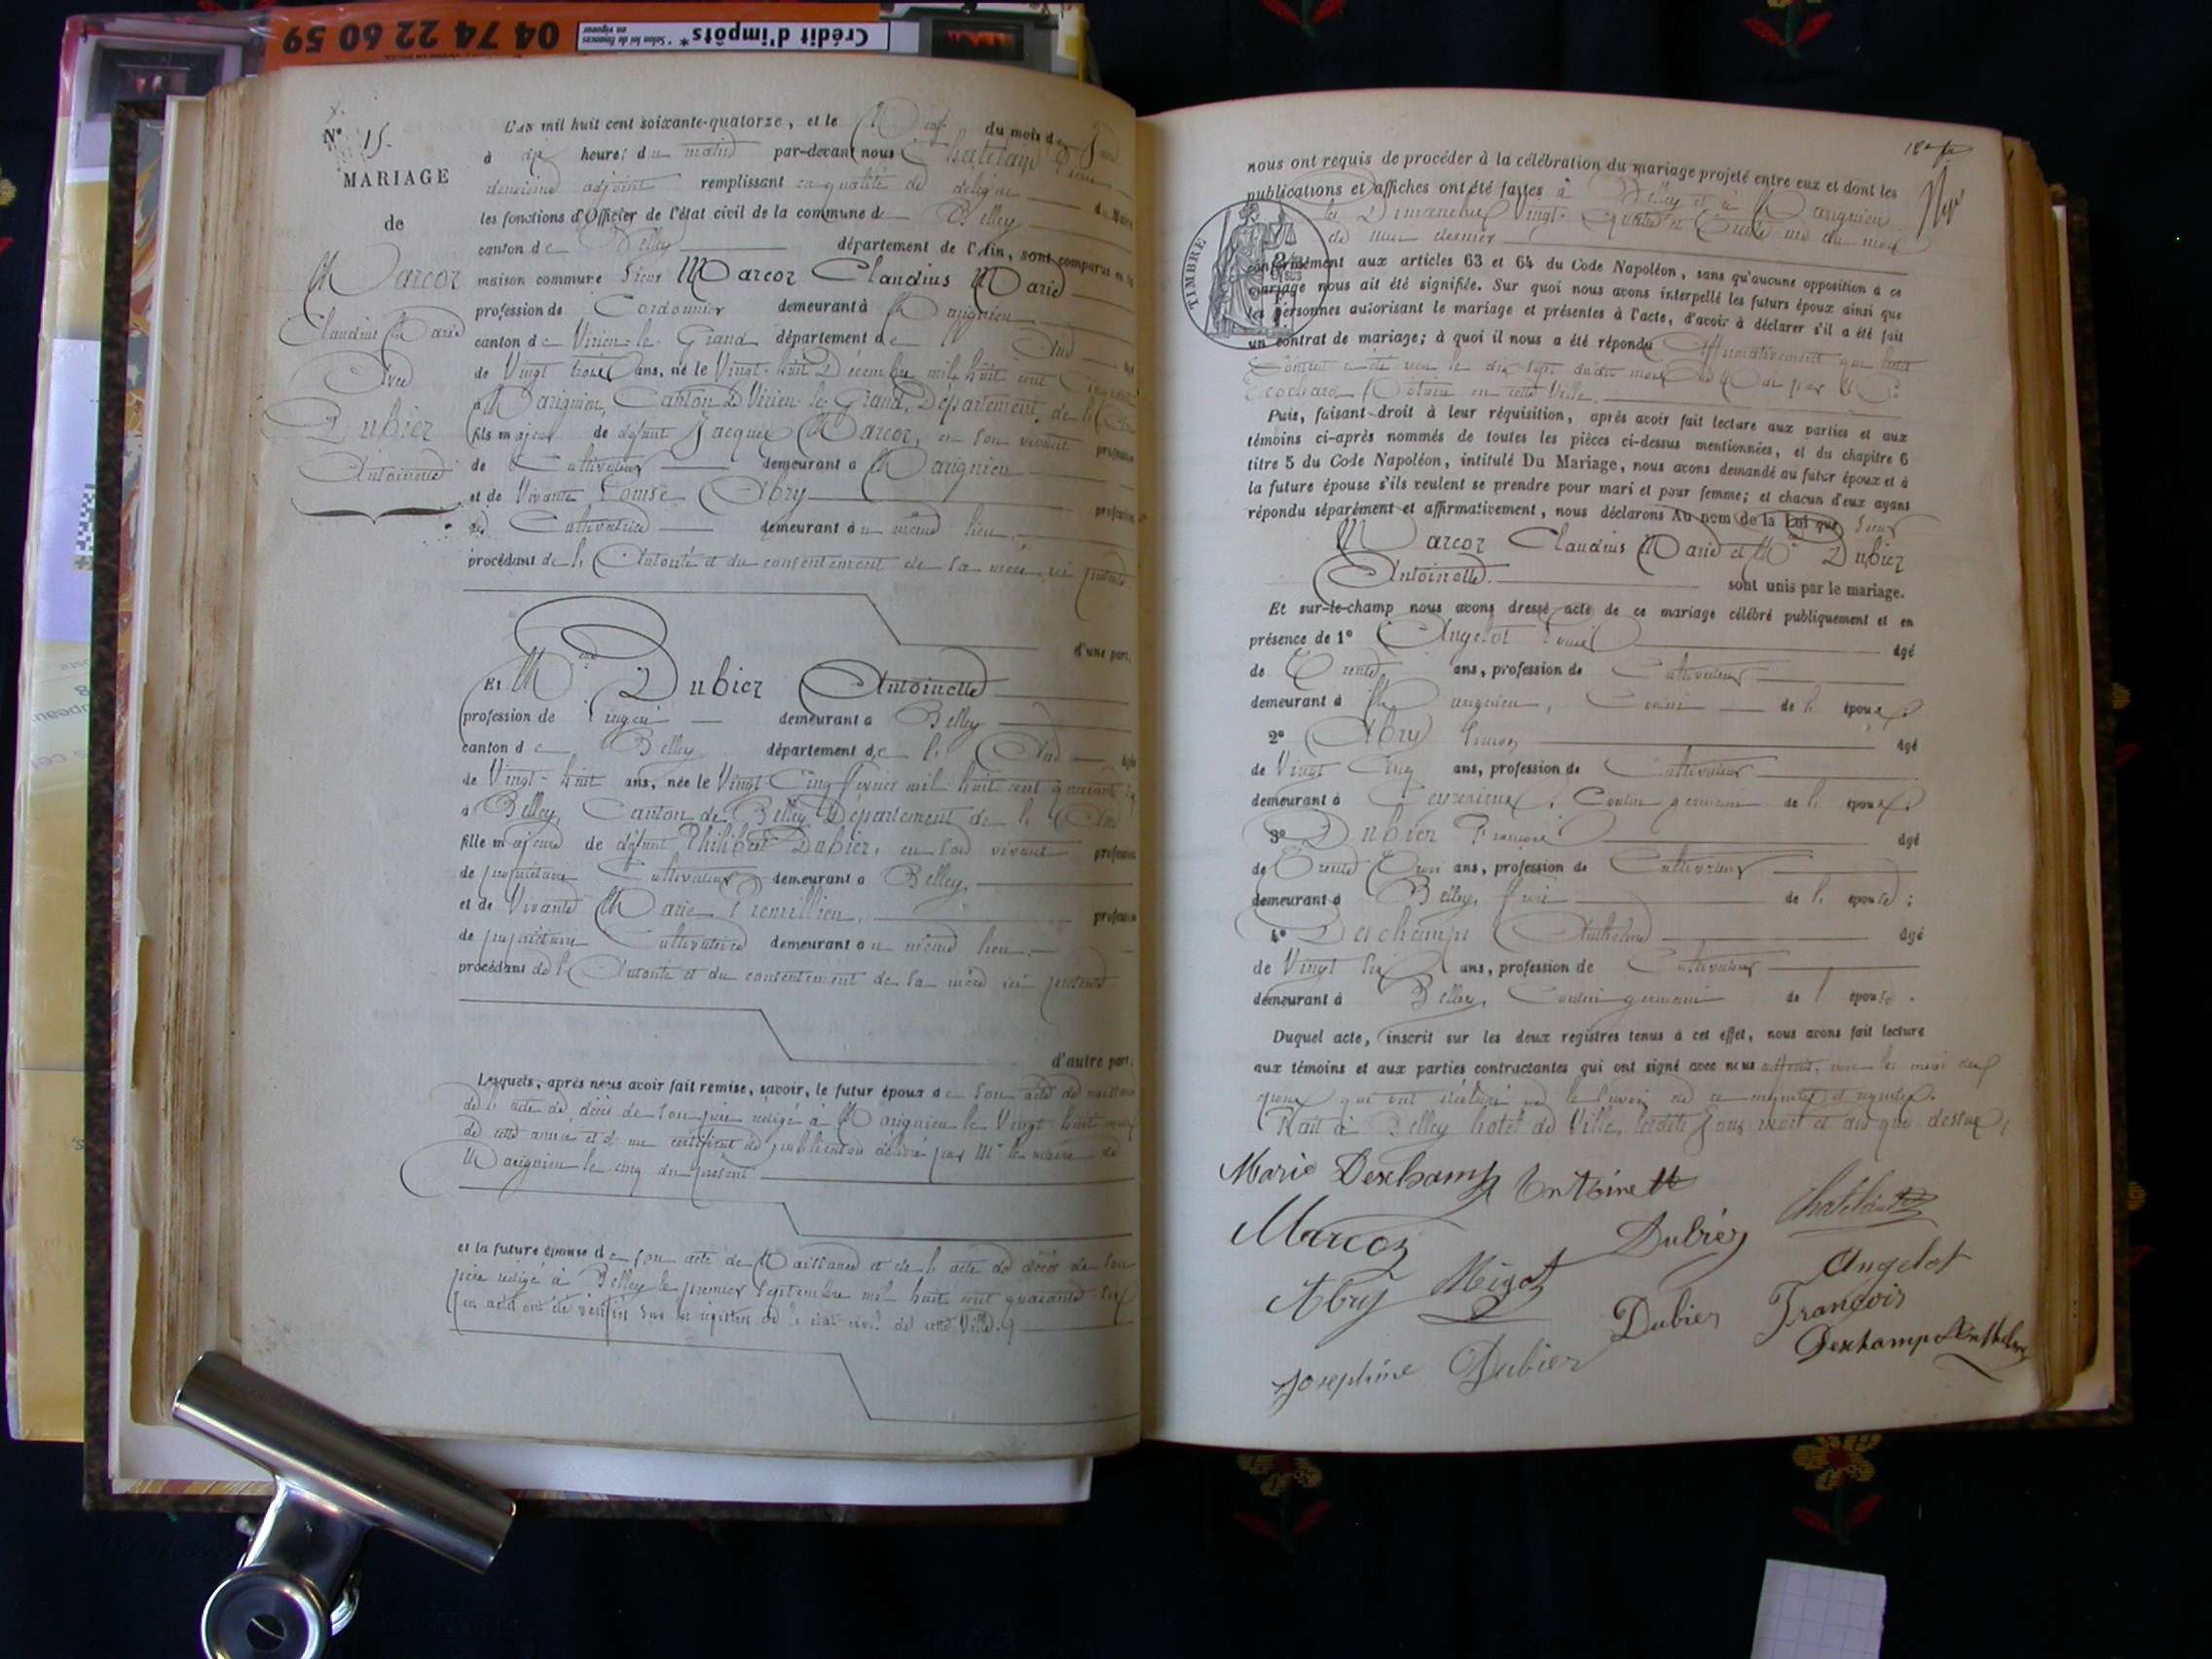 04 74 22 60 59
Crédit d'impôts*
* Selon loi de finances
en vigueur
N° 15.
MARIAGE
de
Marcoz
Claudius Marie
Avec
Dubiez
Antoinette
L'an mil huit cent soixante-quatorze, et le Neuf du mois de Juin
à dix heures du matin par-devant nous Chatelain
deuxième adjoint remplissant en qualité de délégué du Maire
les fonctions d'Officier de l'état civil de la commune de Belley
canton de Belley département de l'Ain, sont comparus en la
maison commune Sieur Marcoz Claudius Marie
profession de Cordonnier demeurant à Marignieu
canton de Virieu-le-Grand département de l'Ain
de Vingt trois ans, né le Vingt-huit Décembre mil huit cent Cinquante
à Marignieu, Canton de Virieu-le-Grand, Département de l'Ain
fils majeur de défunt Jacques Marcoz, en son vivant profession
de Cultivateur demeurant à Marignieu
et de Vivante Louise Abry profession
de Cultivatrice demeurant au même lieu.
procédant de l'Autorité et du consentement de sa mère ici présente
d'une part.
Et Mlle Dubiez Antoinette
profession de Lingère demeurant à Belley
canton de Belley département de l'Ain âgée
de Vingt-huit ans, née le Vingt-Cinq février mil huit cent quarante six
à Belley, Canton de Belley, Département de l'Ain
fille majeure de défunt Philibert Dubiez, en son vivant profession
de propriétaire Cultivateur demeurant à Belley,
et de Vivante Marie Premillieu, profession
de propriétaire Cultivatrice demeurant au même lieu.
procédant de l'Autorité et du consentement de sa mère ici présente
d'autre part.
Lesquels, après nous avoir fait remise, savoir, le futur époux de son acte de naissance
de l'acte de décès de son père rédigé à Marignieu le Vingt-huit
de cette année et d'un certificat de publication délivré par Mr le maire de
Marignieu le cinq du présent
et la future épouse de son acte de Naissance et de l'acte de décès de son
père rédigé à Belley le premier Septembre mil huit cent quarante-six
ont été vérifiés sur les registres de l'état civil de cette Ville.
nous ont requis de procéder à la célébration du mariage projeté entre eux et dont les
publications et affiches ont été faites à Belley et à Marignieu
les Dimanches Vingt-quatre et Trente un du mois
de mai dernier
TIMBRE
conformément aux articles 63 et 64 du Code Napoléon, sans qu'aucune opposition à ce
mariage nous ait été signifiée. Sur quoi nous avons interpellé les futurs époux ainsi que
les personnes autorisant le mariage et présentes à l'acte, d'avoir à déclarer s'il a été fait
un contrat de mariage; à quoi il nous a été répondu Affirmativement que leur
Contrat a été reçu le dix sept dudit mois de Mai par Me
Cochard Notaire en cette Ville.
Puis, faisant droit à leur réquisition, après avoir fait lecture aux parties et aux
témoins ci-après nommés de toutes les pièces ci-dessus mentionnées, et du chapitre 6
titre 5 du Code Napoléon, intitulé Du Mariage, nous avons demandé au futur époux et à
la future épouse s'ils veulent se prendre pour mari et pour femme; et chacun d'eux ayant
répondu séparément et affirmativement, nous déclarons Au nom de la Loi que Sieur
Marcoz Claudius Marie et Mlle Dubiez
Antoinette. sont unis par le mariage.
Et sur-le-champ nous avons dressé acte de ce mariage célébré publiquement et en
présence de 1° Angelot Louis âgé
de Trente ans, profession de Cultivateur
demeurant à Marignieu, Cousin de l'époux;
2° Abry âgé
de Vingt Cinq ans, profession de Cultivateur
demeurant à Ceyzerieux, Cousin germain de l'époux;
3° Dubiez François âgé
de Trente Trois ans, profession de Cultivateur
demeurant à Belley, frère de l'épouse;
4° Deschamps Anthelme âgé
de Vingt six ans, profession de Cultivateur
demeurant à Belley, Cousin germain de l'épouse.
Duquel acte, inscrit sur les deux registres tenus à cet effet, nous avons fait lecture
aux témoins et aux parties contractantes qui ont signé avec nous non les mères des
époux qui ont déclaré ne le savoir de ce enquises et requises.
Fait à Belley hôtel de Ville, lesdits jour mois et an que dessus,
Marie Deschamp Antoinette
Marcoz Dubiez Chatelain
Abry Migot Angelot
Dubiez François
Deschamp Anthelme
Josephine Dubiez